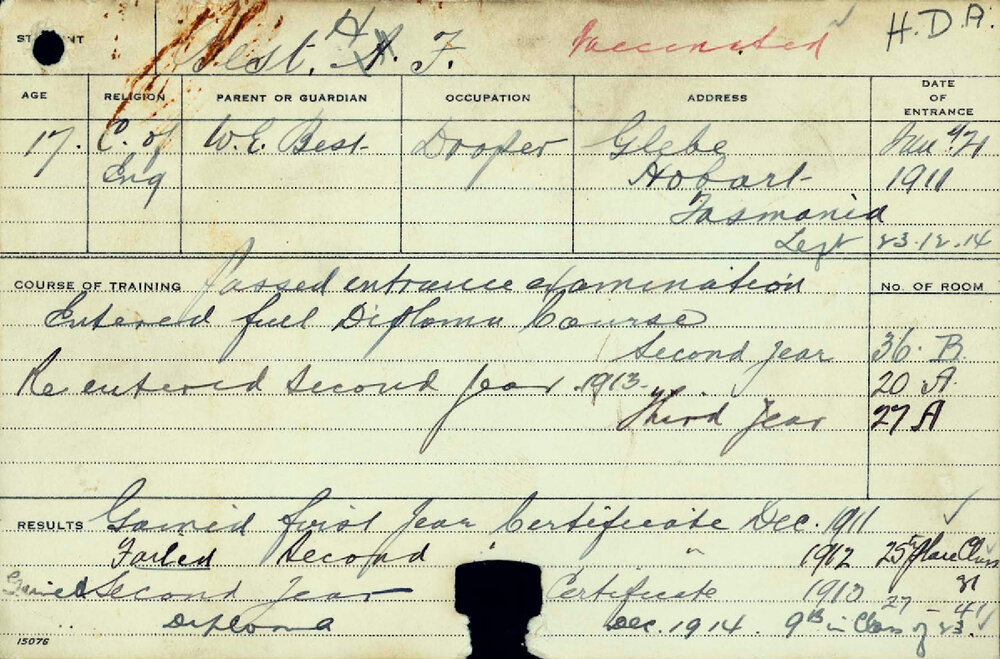 STUDENT Best. H. F. Vaccinated H.D.A.
AGE RELIGION PARENT OR GUARDIAN OCCUPATION ADDRESS DATE OF ENTRANCE
17. C. of W. E. Best Draper Glebe Jan
Eng Hobart 1911
Tasmania
Left 23.12.14
COURSE OF TRAINING Passed entrance examination No. OF ROOM
Entered full Diploma Course
Second Year 36. B.
Re entered Second Year 1913. 20 A.
Third Year 27 A
RESULTS Gained first Year Certificate Dec. 1911
Failed Second " " 1912 25th place Class
31
Gained Second Year Certificate 1913 27 - 41
Diploma Dec. 1914. 9th in Class of 23.
15076